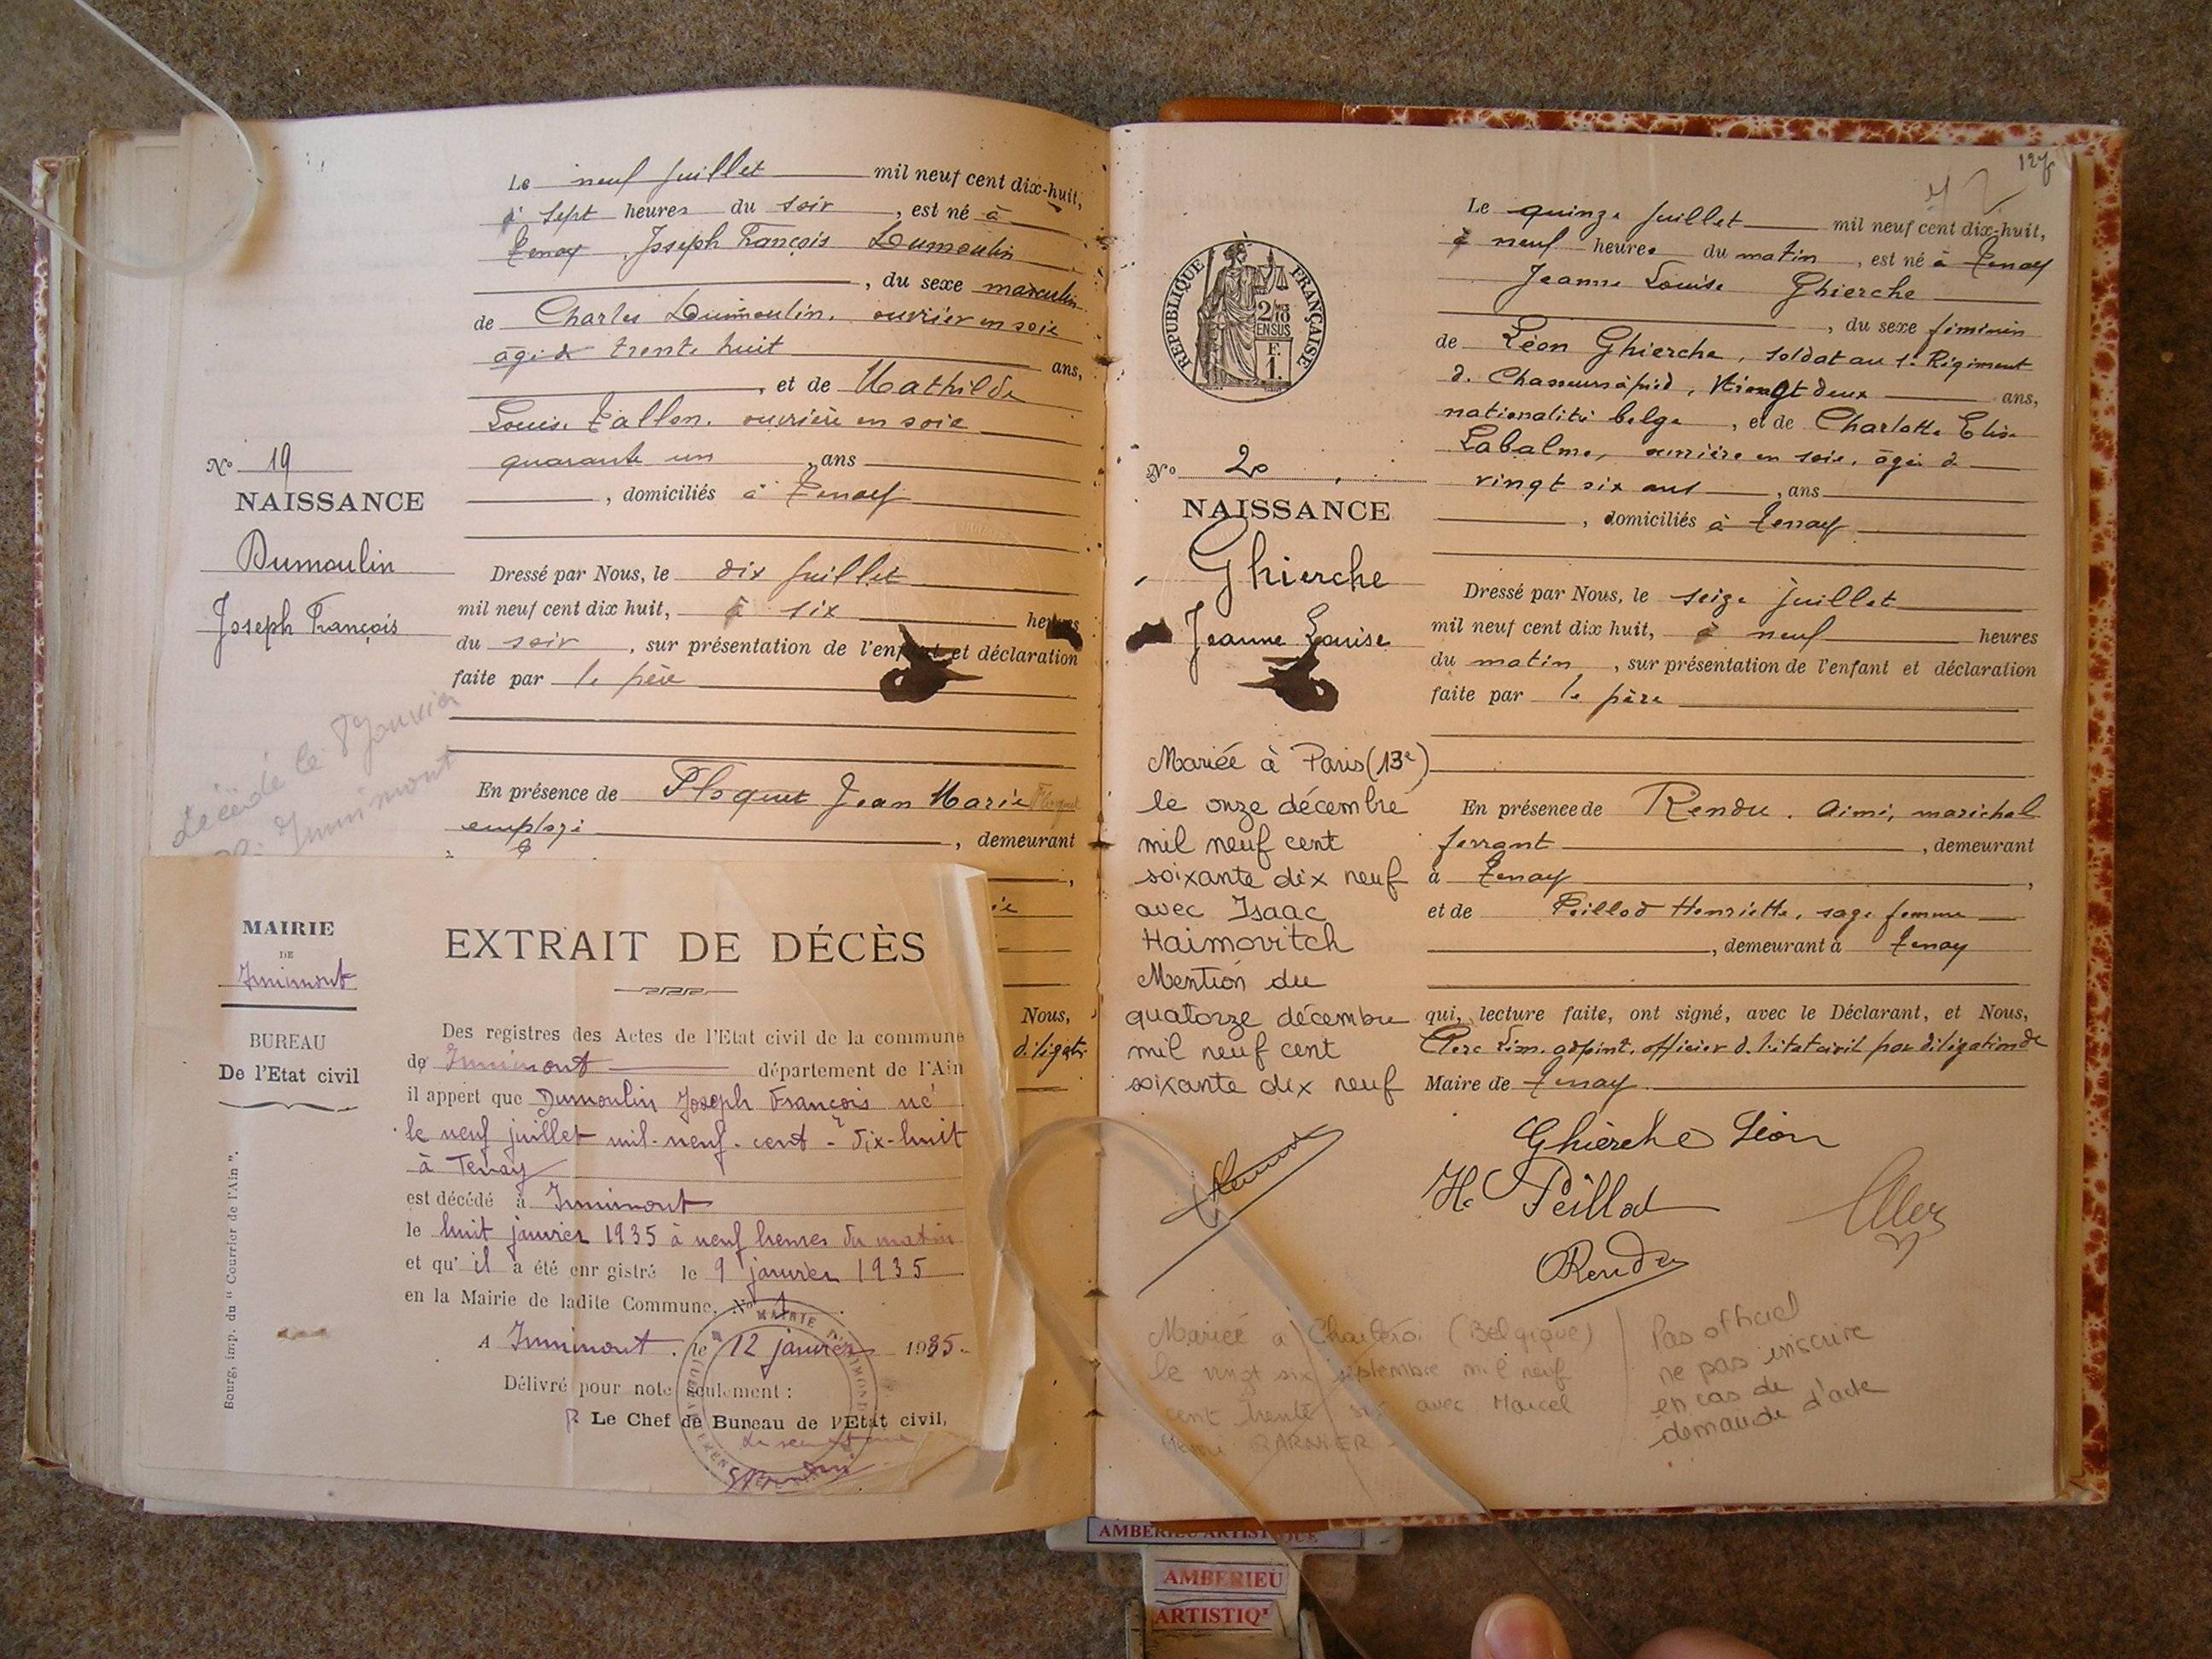 Le neuf juillet mil neuf cent dix-huit,
à sept heures du soir, est né à
Tenay, Joseph François Dumoulin
, du sexe masculin
de Charles Dumoulin, ouvrier en soie
âgé de trente huit ans,
, et de Mathilde
Louise Tallon, ouvrière en soie
quarante un, ans
, domiciliés à Tenay
No 19
NAISSANCE
Dumoulin
Joseph François
Dressé par Nous, le dix juillet
mil neuf cent dix huit, à six heures
du soir, sur présentation de l'enfant et déclaration
faite par le père
Décédé le 8 Janvier
Innimont
En présence de Floquet Jean Marie
employé, demeurant
Nous,
MAIRIE
DE
Innimont
BUREAU
De l'Etat civil
Bourg, imp. du "Courrier de l'Ain".
EXTRAIT DE DÉCÈS
Des registres des Actes de l'Etat civil de la commune
de Innimont département de l'Ain
il appert que Dumoulin Joseph François né
le neuf juillet mil-neuf-cent-dix-huit
à Tenay
est décédé à Innimont
le huit janvier 1935 à neuf heures du matin
et qu'il a été enregistré le 9 janvier 1935
en la Mairie de ladite Commune, No 1
A Innimont, le 12 janvier 1935.
Délivré pour note seulement :
Le Chef de Bureau de l'Etat civil,
127
Le quinze juillet mil neuf cent dix-huit,
à neuf heures du matin, est né à Tenay
Jeanne Louise Ghierche
, du sexe féminin
de Léon Ghierche, soldat au 1er Régiment
de Chasseurs à pied, vingt deux ans,
nationalité belge, et de Charlotte Elise
Labalme, ouvrière en soie, âgée de
vingt six ans, ans
, domiciliés à Tenay
RÉPUBLIQUE FRANÇAISE
No 20
NAISSANCE
Ghierche
Jeanne Louise
Dressé par Nous, le seize juillet
mil neuf cent dix huit, à neuf heures
du matin, sur présentation de l'enfant et déclaration
faite par le père
Mariée à Paris (13e)
le onze décembre
mil neuf cent
soixante dix neuf
avec Isaac
Haimovitch
Mention du
quatorze décembre
mil neuf cent
soixante dix neuf
En présence de Rendu, Aimé, maréchal
ferrant, demeurant
à Tenay,
et de Peillod Henriette, sage femme
, demeurant à Tenay
qui, lecture faite, ont signé, avec le Déclarant, et Nous,
adjoint, officier de l'état civil par délégation de
Maire de Tenay
Ghierche Léon
H. Peillod
Rendu
Mariée à Charleroi (Belgique)
le vingt six septembre mil neuf
cent trente avec Marcel
Pas officiel
ne pas inscrire
en cas de
demande d'acte
AMBERIEU ARTISTIQUE
AMBERIEU
ARTISTIQ